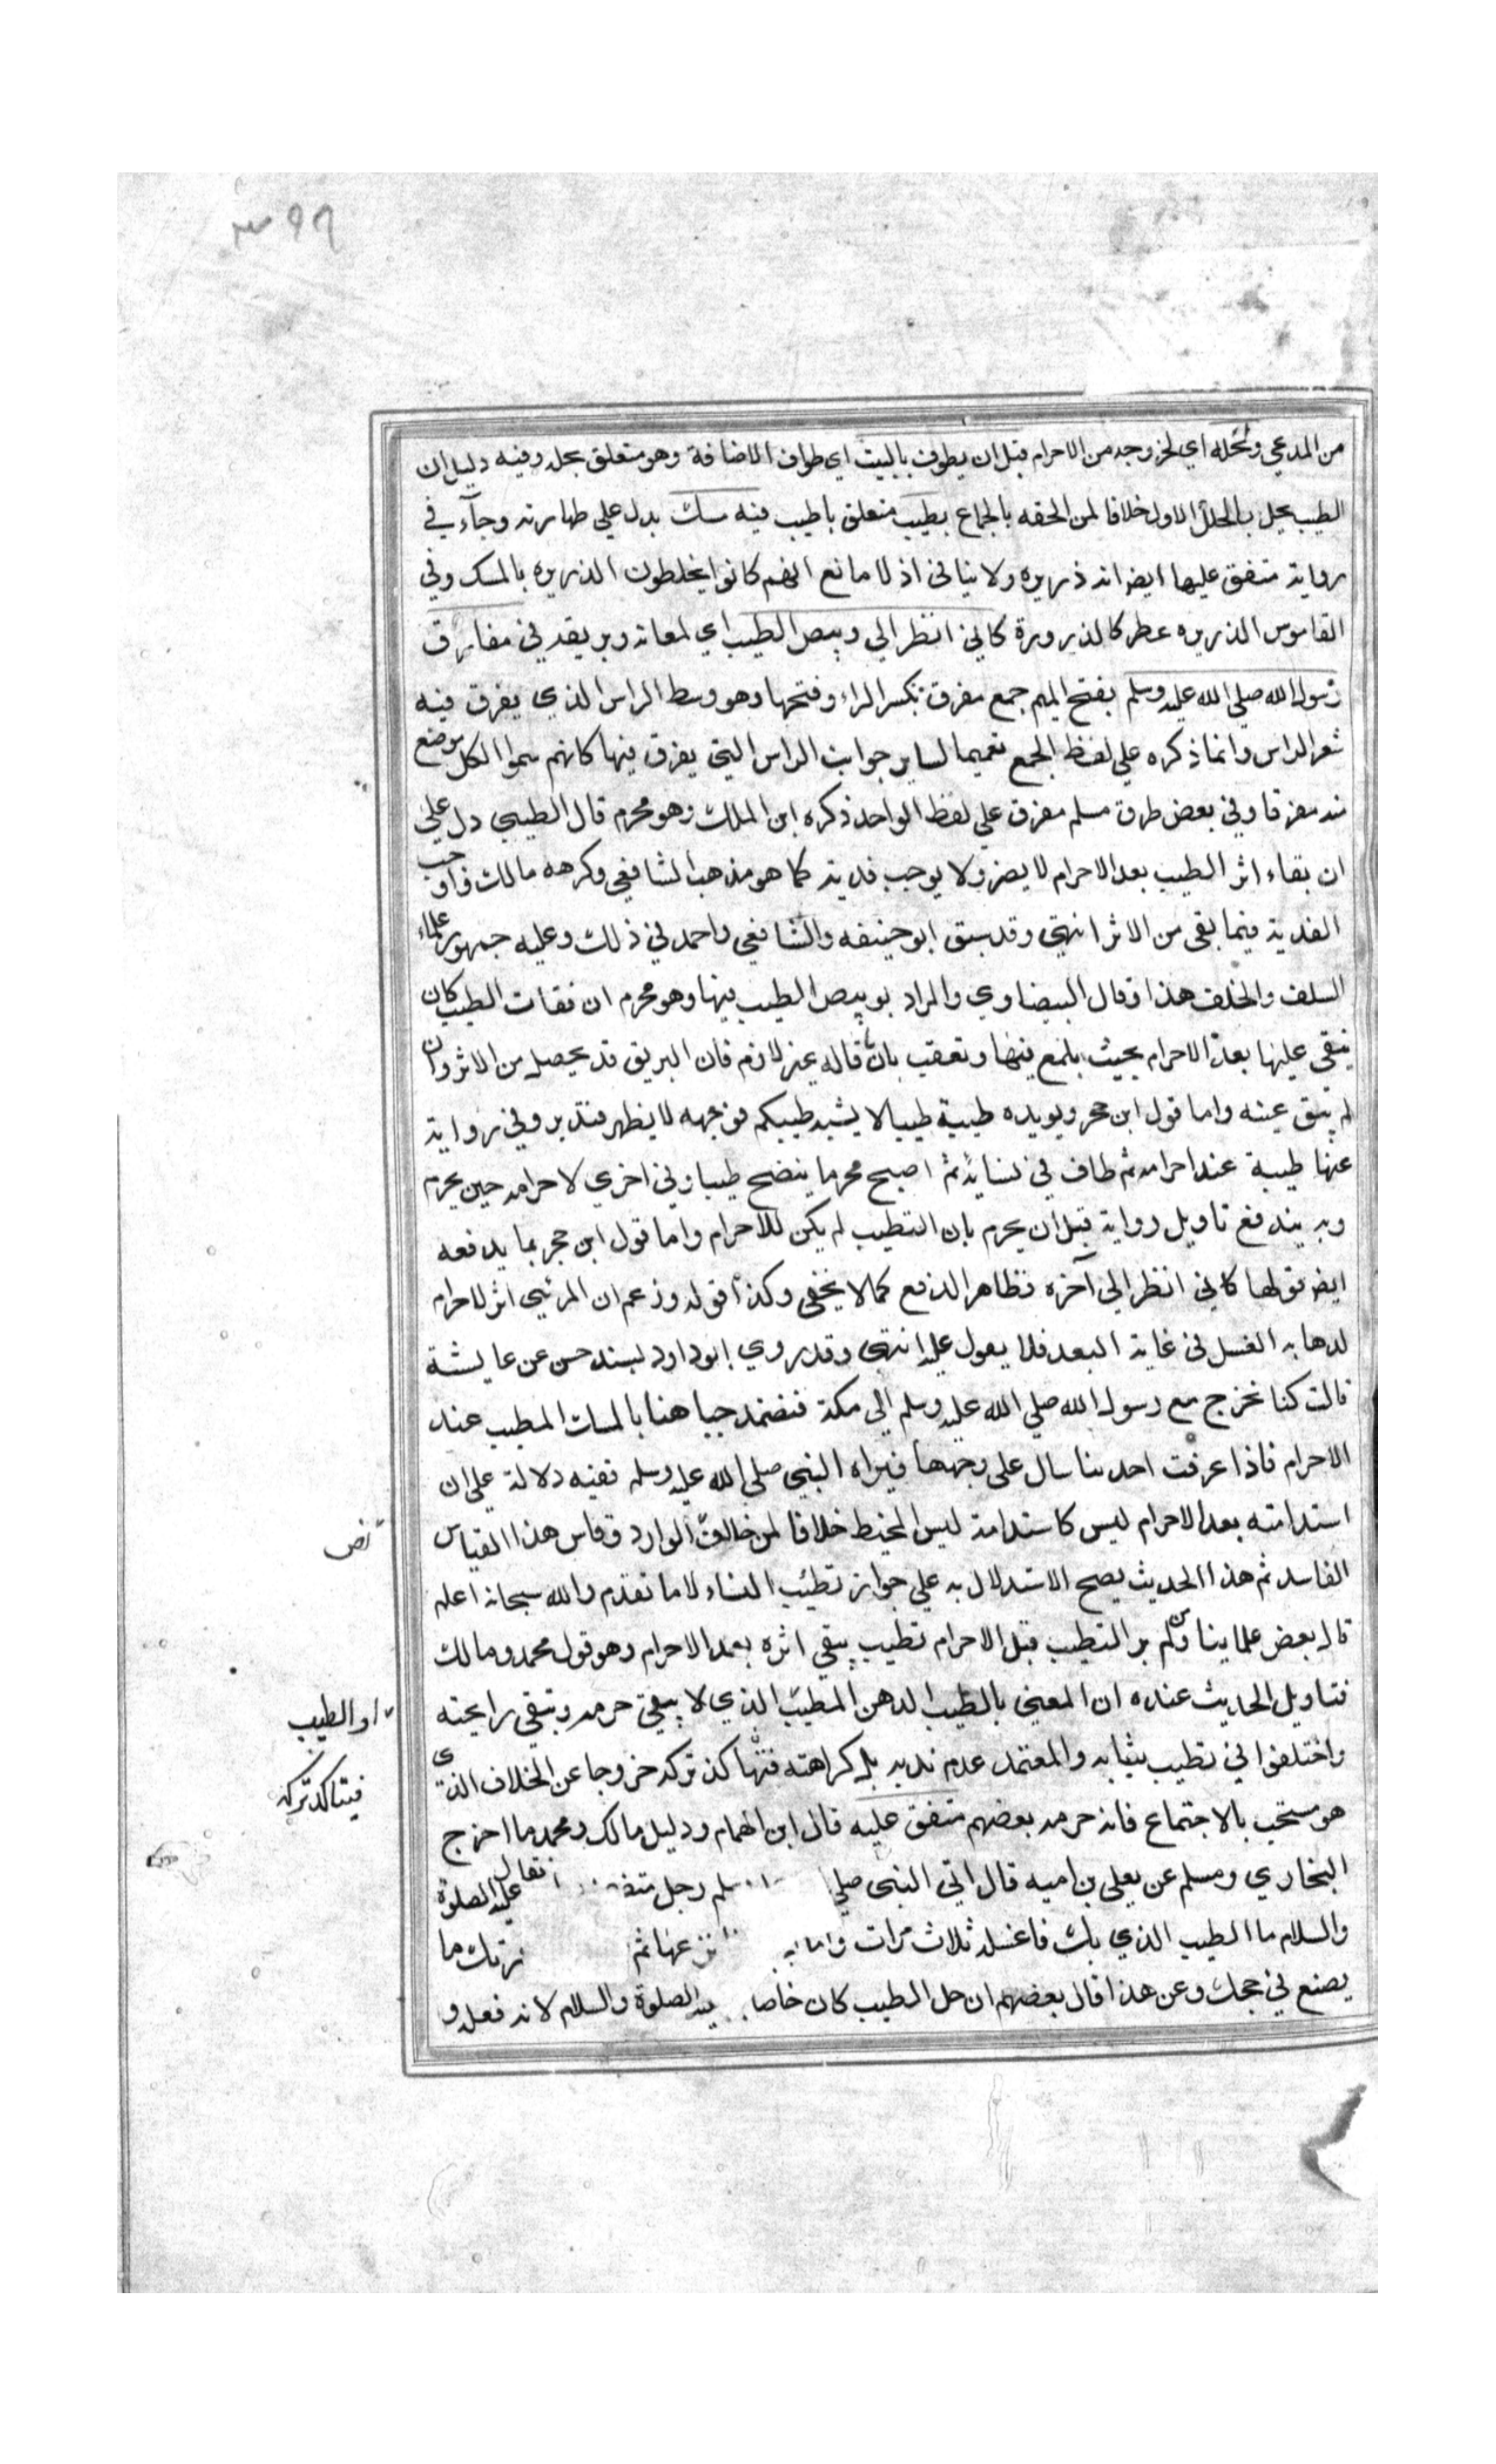 ٣٩٩
من المدعي ولحله اي لخروجه من الاحرام قبل ان يطوف بالبيت اي طواف الافاضة وهو متعلق بحله وفيه دليل ان
الطيب يحل بالتحلل الاول خلافا لمن الحقه بالجماع بطيب متعلق باطيب فيه مسك يدل علي طهارته وجآء في
رواية متفق عليها ايض انه ذريره ولا ينافي اذ لا مانع انهم كانوا يخلطون الذريره بالمسك وفي
القاموس الذريره عطر كالذرورة كاني انظر الي وبيص الطيب اي لمعانه وبريقه في مفارق
رسول الله صلي الله عليه وسلم بفتح الميم جمع مفرق بكسر الراء وفتحها وهو وسط الراس الذي يفرق فيه
شعر الراس وانما ذكره علي لفظ الجمع تعميما لساير جوانب الراس التي يفرق فيها كانهم سموا الكل موضع
منه مفرقا وفي بعض طرق مسلم مفرق علي لفظ الواحد ذكره ابن الملك وهو محرم قال الطيبي دل علي
ان بقاء اثر الطيب بعد الاحرام لا يضر ولا يوجب فدية كما هو مذهب الشافعي وكرهه مالك واوجب
الفدية فيما بقي من الاثر انتهي وقد سبق ابو حنيفه والشافعي واحمد في ذلك وعليه جمهور علماء
السلف والخلف هذا وقال البيضاوي والمراد بوبيص الطيب فيها وهو محرم ان فتات الطيب كان
يبقي عليها بعد الاحرام بحيث يلمع فيها وتعقب بان ما قاله غير لازم فان البريق قد يحصل من الاثر وان
لم يبق عينه واما قول ابن حجر ويويده طيبة طيبا لا يشبه طيبكم فوجهه لا يظهر فتدبر وفي رواية
عنها طيبة عند احرامه ثم طاف في نسايه ثم اصبح محرما ينضح طيبا وفي اخري لاحرامه حين يحرم
وبه يندفع تاويل رواية قبل ان يحرم بان التطيب لم يكن للاحرام واما قول ابن حجر بما يدفعه
ايض قولها كاني انظر الي آخره فظاهر الدفع كما لا يخفي وكذا قوله وزعم ان المرئي اثر للاحرام
لدهابه الغسل في غاية البعد فلا يعول عليه انتهي وقد روي ابو داود بسند حسن عن عايشة
قالت كنا نخرج مع رسول الله صلي الله عليه وسلم الي مكة فنضمد جباهنا بالمسك المطيب عند
الاحرام فاذا عرقت احدينا سال علي وجهها فيراه النبي صلي الله عليه وسلم ففيه دلالة علي ان
استدامته بعد الاحرام ليس كاستدامة لبس المخيط خلافا لمن خالف الوارد وقاس هذا القياس
نص
الفاسد ثم هذا الحديث يصح الاستدلال به علي جواز تطيب النساء لا ما تقدم والله سبحانه اعلم
قال بعض علماينا ومن لم ير التطيب قبل الاحرام تطيب يبقي اثره بعد الاحرام وهو قول محمد ومالك
فتاويل الحديث عنده ان المعني بالطيب الدهن المطيب الذي لا يبقي جرمه وتبقي رايحته
او الطيب
واختلفوا في تطيب ثيابه والمعتمد عدم ندبه بل كراهته فتاكد تركه خروجا عن الخلاف الذي
فيتاكد تركه
هو مستحب بالاجتماع فانه حرمه بعضهم متفق عليه قال ابن الهمام ودليل مالك ومحمد ما اخرج
البخاري ومسلم عن يعلي بن اميه قال اتي النبي صلي سلم رجل فقال عليه الصلوة
والسلام ما الطيب الذي بك فاغسله ثلاث مرات عنها ثم ما
يصنع في حجك وعن هذا قال بعضهم ان حل الطيب كان خاصا الصلوة والسلام لانه فعله و